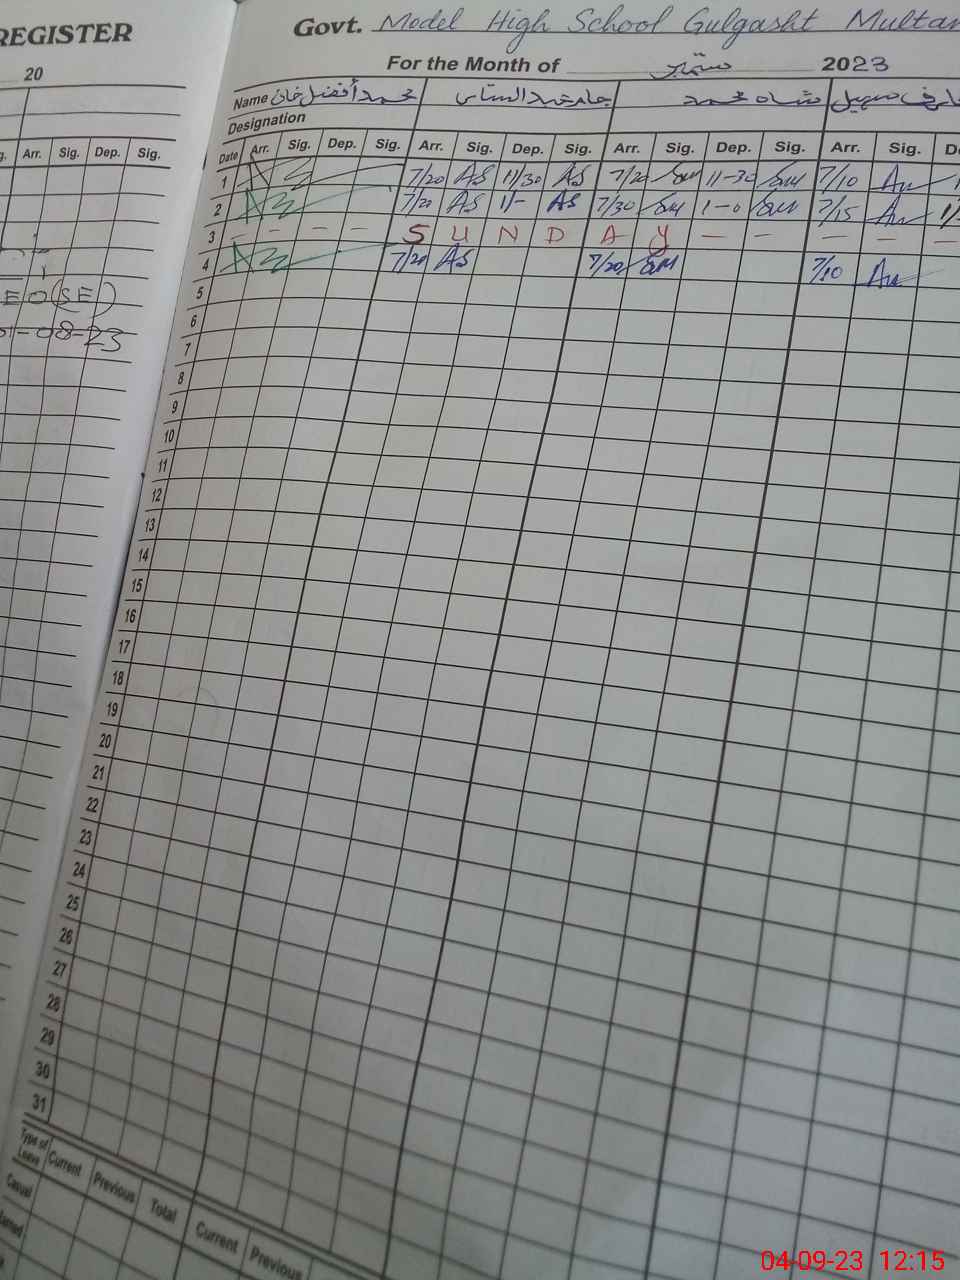 REGISTER
20
Arr. Sig. Dep. Sig.
EO(SE)
01-08-23
Govt. Model High School Gulgasht Multan
For the Month of ستمبر 2023
Name محمد أفضل خان حامد عبدالستار شاہ محمد عارف سہیل
Designation
Date Arr. Sig. Dep. Sig. Arr. Sig. Dep. Sig. Arr. Sig. Dep. Sig. Arr. Sig.
1 7/20 AS 11/30 AS 7/20 SM 11-30 SM 7/10
2 7/20 AS 1/- AS 7/30 SM 1-0 SM 7/15
3 - - - - S U N D A Y - - - - -
4 7/20 AS 7/20 SM 7/10
5
6
7
8
9
10
11
12
13
14
15
16
17
18
19
20
21
22
23
24
25
26
27
28
29
30
31
Type of Leave Current Previous Total Current Previous
Casual
04-09-23 12:15